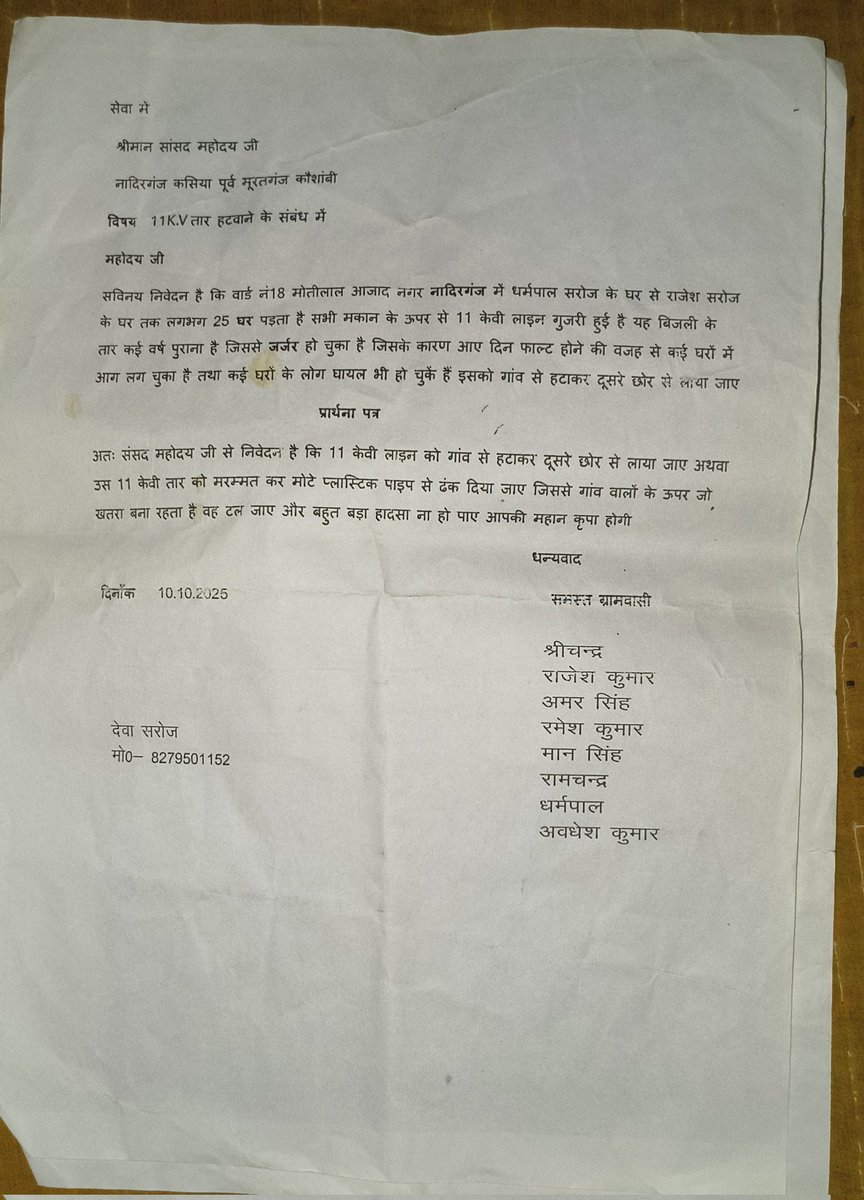 सेवा में
श्रीमान सांसद महोदय जी
नादिरगंज कसिया पूर्व मूरतगंज कौशांबी
विषय 11K.V तार हटवाने के संबंध में
महोदय जी
सविनय निवेदन है कि वार्ड नं18 मोतीलाल आजाद नगर नादिरगंज में धर्मपाल सरोज के घर से राजेश सरोज
के घर तक लगभग 25 घर पड़ता है सभी मकान के ऊपर से 11 केवी लाइन गुजरी हुई है यह बिजली के
तार कई वर्ष पुराना है जिससे जर्जर हो चुका है जिसके कारण आए दिन फाल्ट होने की वजह से कई घरों में
आग लग चुका है तथा कई घरों के लोग घायल भी हो चुकें हैं इसको गांव से हटाकर दूसरे छोर से लाया जाए
प्रार्थना पत्र
अतः संसद महोदय जी से निवेदन है कि 11 केवी लाइन को गांव से हटाकर दूसरे छोर से लाया जाए अथवा
उस 11 केवी तार को मरम्मत कर मोटे प्लास्टिक पाइप से ढंक दिया जाए जिससे गांव वालों के ऊपर जो
खतरा बना रहता है वह टल जाए और बहुत बड़ा हादसा ना हो पाए आपकी महान कृपा होगी
धन्यवाद
दिनाँक 10.10.2025
समस्त ग्रामवासी
श्रीचन्द्र
राजेश कुमार
अमर सिंह
रमेश कुमार
मान सिंह
रामचन्द्र
धर्मपाल
अवधेश कुमार
देवा सरोज
मो0– 8279501152